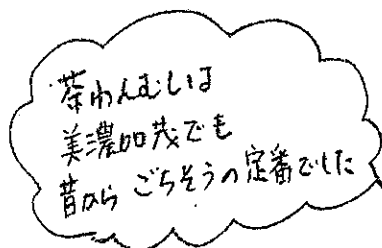 茶わんむしは
美濃加茂でも
昔から ごちそうの定番でした